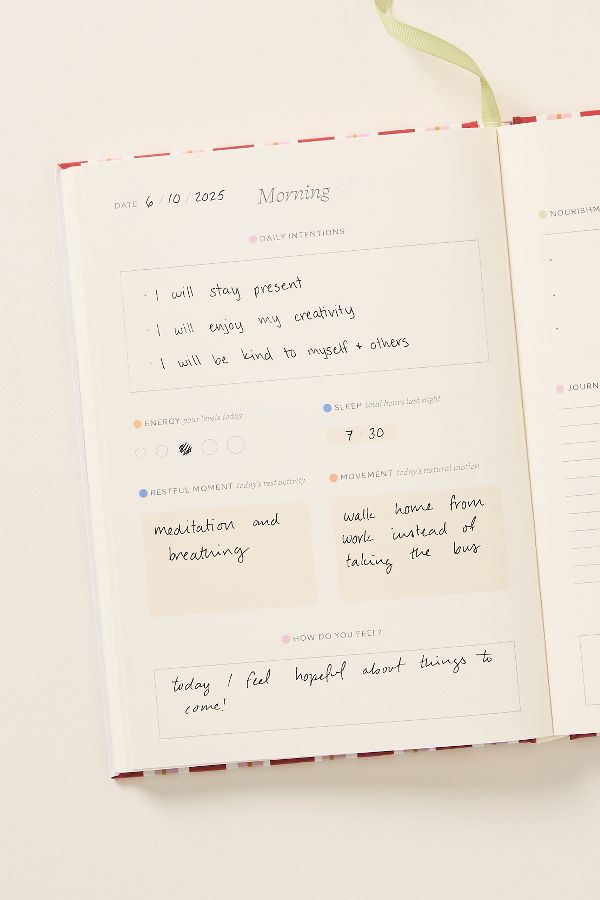 DATE 6 / 10 / 2025 Morning
DAILY INTENTIONS
· I will stay present
· I will enjoy my creativity
· I will be kind to myself + others
ENERGY your levels today
SLEEP total hours last night
7 : 30
RESTFUL MOMENT today's rest activity
meditation and
breathing
MOVEMENT today's natural motion
walk home from
work instead of
taking the bus
HOW DO YOU FEEL?
today I feel hopeful about things to
come!